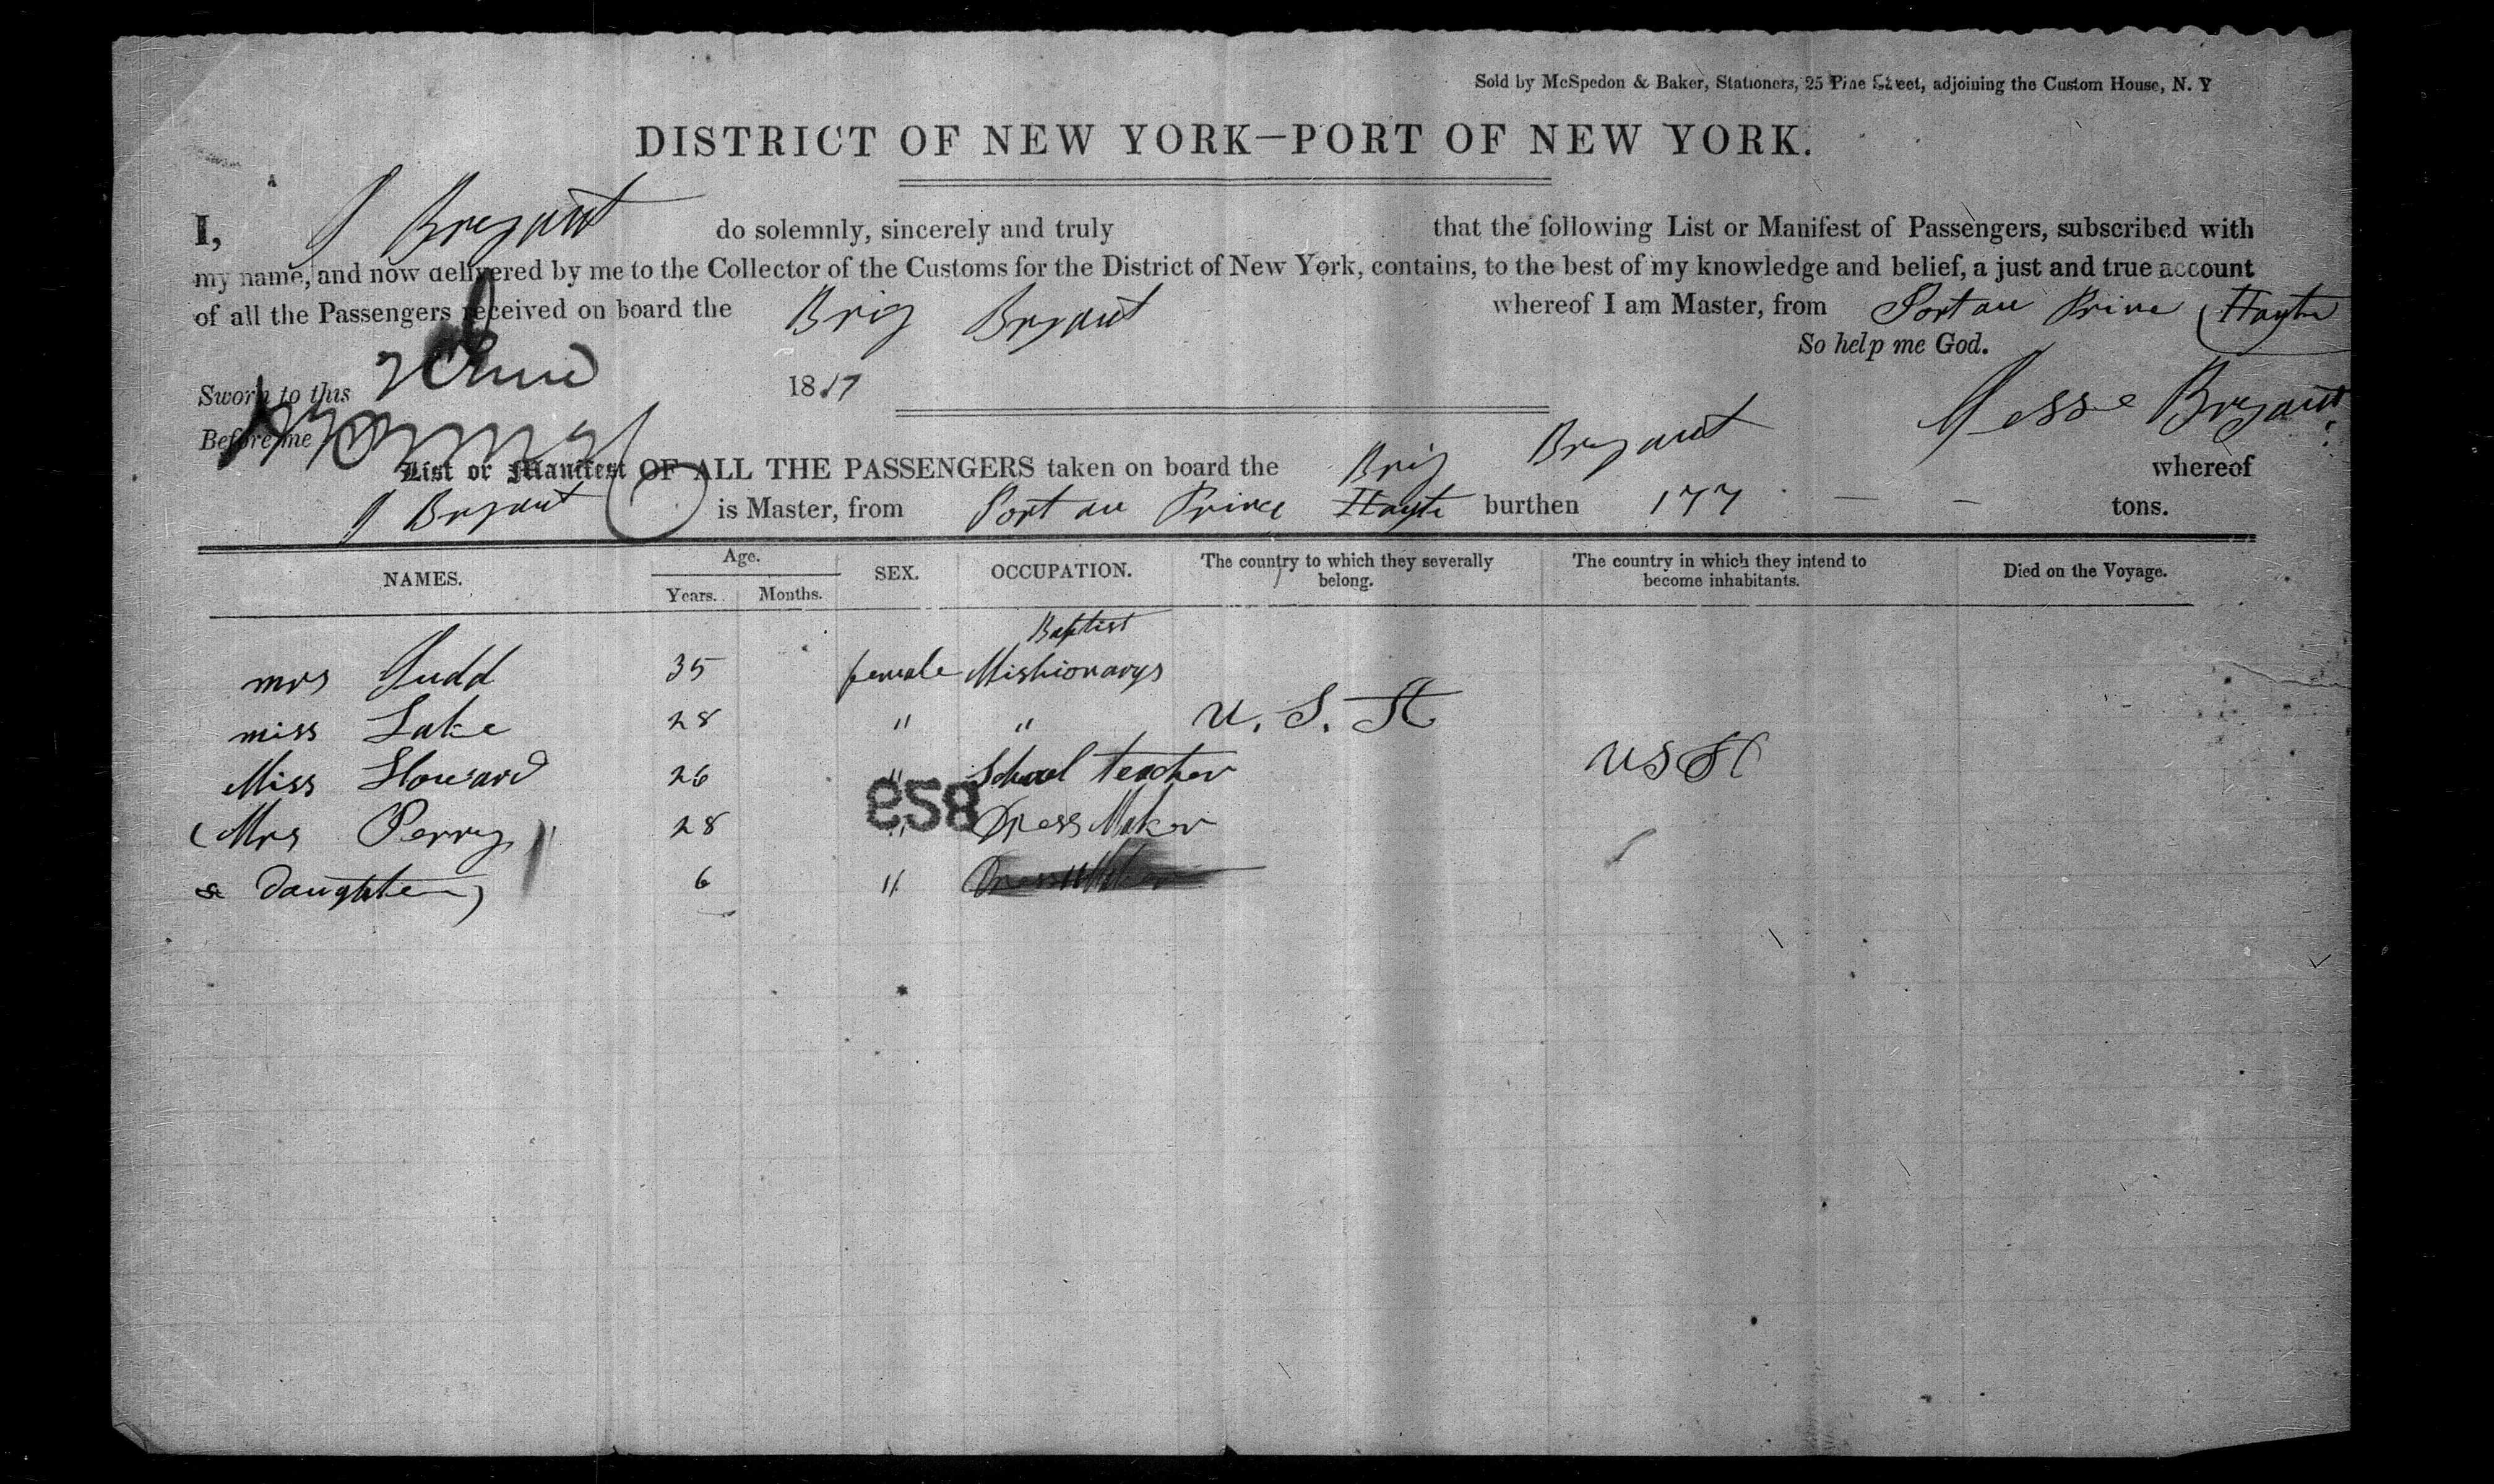 Sold by McSpedon & Baker, Stationers, 25 Pine Street, adjoining the Custom House, N. Y
DISTRICT OF NEW YORK—PORT OF NEW YORK.
I, J Bryant do solemnly, sincerely and truly that the following List or Manifest of Passengers, subscribed with
my name, and now delivered by me to the Collector of the Customs for the District of New York, contains, to the best of my knowledge and belief, a just and true account
of all the Passengers received on board the Brig Bryant whereof I am Master, from Port au Prine Hayti
So help me God.
Sworn to this 18
Jesse Bryant
Before me
List or Manifest OF ALL THE PASSENGERS taken on board the Brig Bryant whereof
J Bryant is Master, from Port au Prince Hayti burthen 177 tons.
NAMES. Age. Years. Months. SEX. OCCUPATION. The country to which they severally belong. The country in which they intend to become inhabitants. Died on the Voyage.
Baptist
mrs Judd 35 female Mishionarys
miss Lake 28 " " U. S. St
Miss Howard 26 " School teacher US St
958
(Mrs Perry 28 " Dress Maker
& daughter) 6 "